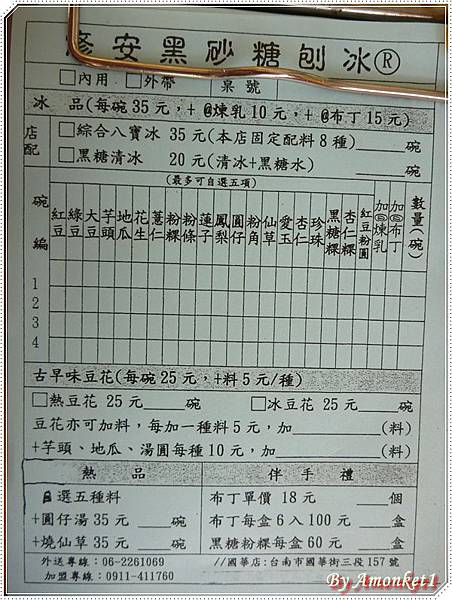 修安黑砂糖刨冰®
□內用 □外帶 桌號
冰 品(每碗35元,+@煉乳10元,+@布丁15元)
店配
□綜合八寶冰 35元(本店固定配料8種)____碗
□黑糖清冰 20元(清冰+黑糖水)____碗
(最多可自選五項)
碗編 紅豆 綠豆 大豆 芋頭 地瓜 花生 薏仁 粉粿 粉條 蓮子 鳳梨 圓仔 粉角 仙草 愛玉 杏仁 珍珠 黑糖粿 杏仁粿 紅豆粉圓 加@煉乳 加@布丁 數量(碗)
1
2
3
4
古早味豆花(每碗25元,+料5元/種)
□熱豆花 25元____碗 □冰豆花 25元____碗
豆花亦可加料,每加一種料5元,加________(料)
+芋頭、地瓜、湯圓每種10元,加________(料)
熱 品 伴 手 禮
自選五種料 布丁單價 18元 ____個
+圓仔湯35元 ____碗 布丁每盒6入100元 ____盒
+燒仙草35元 ____碗 黑糖粉粿每盒60元 ____盒
外送專線:06-2261069 //國華店:台南市國華街三段157號
加盟專線:0911-411760
By Amonket1